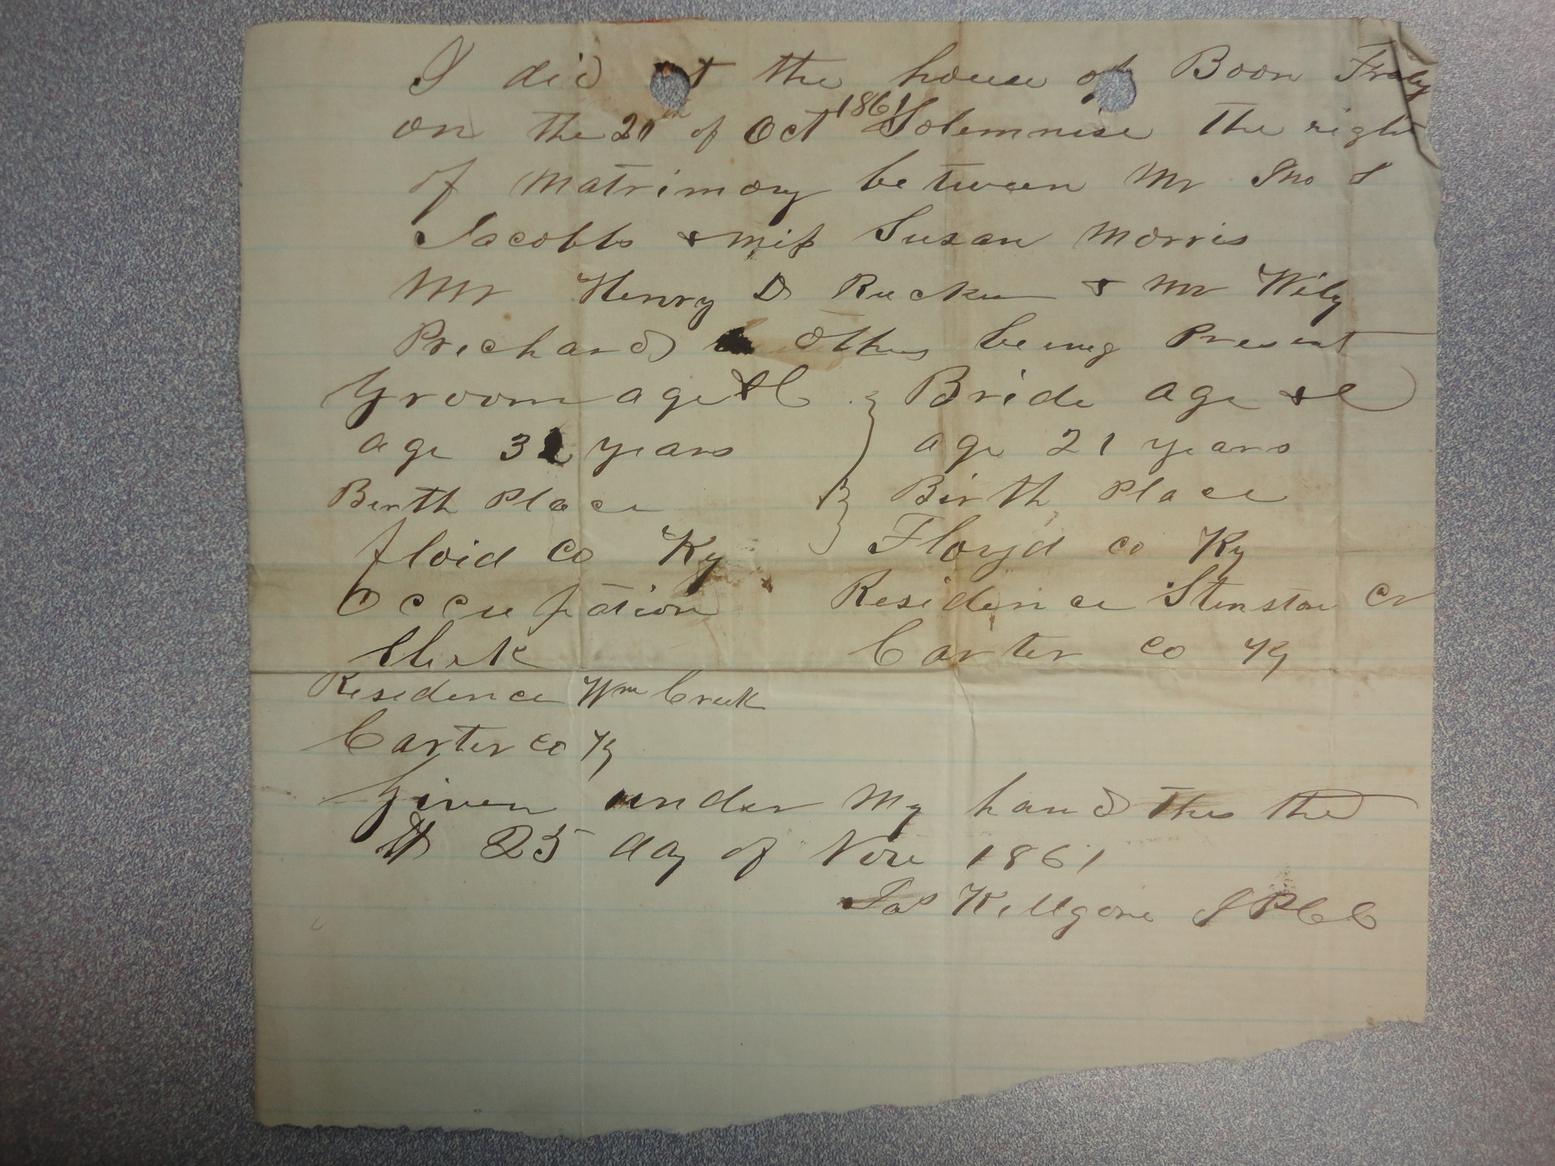 I did at the house of Boon Fraly
on the 21th of Oct 1861 Solemnise the right
of Matrimony between Mr Jno S
Jacobbs & Miss Susan Morris
Mr Henry D Rucker & Mr Wily
Prichard & others being Present
Groom age &C Bride age &C
age 3 years age 21 years
Birth Place Birth Place
floid Co Ky Floyd co Ky
Occupation Residence Stinston Cr
Clerk Carter Co Ky
Residence Wms Creek
Carter Co Ky
Given under My hand This the
25 day of Nov 1861
Jas Killgore J P C C